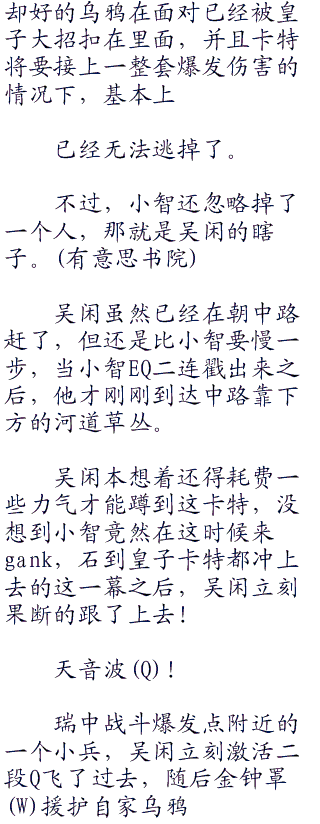 却好的乌鸦在面对已经被皇
子大招扣在里面，并且卡特
将要接上一整套爆发伤害的
情况下，基本上
已经无法逃掉了。
不过，小智还忽略掉了
一个人，那就是吴闲的瞎
子。(有意思书院)
吴闲虽然已经在朝中路
赶了，但还是比小智要慢一
步，当小智EQ二连戳出来之
后，他才刚刚到达中路靠下
方的河道草丛。
吴闲本想着还得耗费一
些力气才能蹲到这卡特，没
想到小智竟然在这时候来
gank，石到皇子卡特都冲上
去的这一幕之后，吴闲立刻
果断的跟了上去！
天音波(Q)！
瑞中战斗爆发点附近的
一个小兵，吴闲立刻激活二
段Q飞了过去，随后金钟罩
(W)援护自家乌鸦